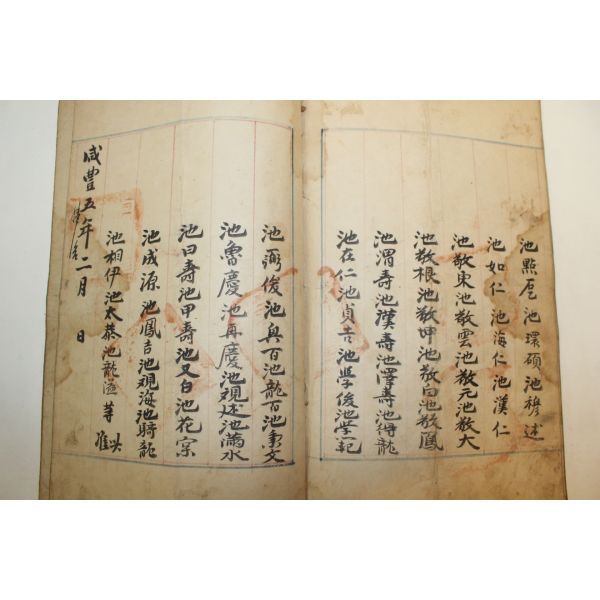 池點㐗 池環碩 池穆述
池如仁 池海仁 池漢仁
池敬東池敬雲池敬元池敬大
池敬根池敬坤池敬白池敬鳳
池渭壽池漢壽池澤壽池得龍
池在仁池貞吉池學俊池學範
池弼俊池奥百池龍百池勳文
池魯慶池再慶池觀述池滿水
池曰壽池甲壽池又白池花宗
池成源池鳳吉池觀海池時龍
池相伊池太恭池龍 等
咸豊五年二月 日